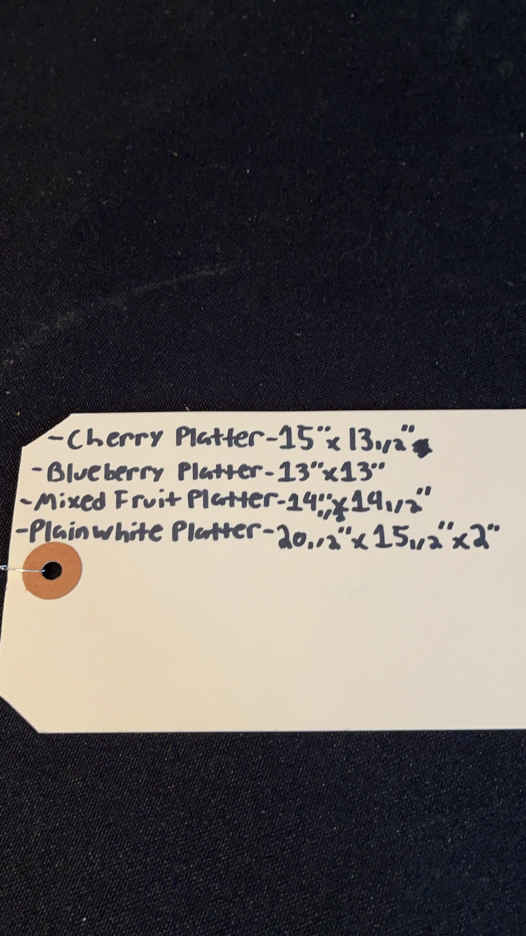 -Cherry Platter-15"x 13 1/2"
-Blueberry Platter-13"x13"
-Mixed Fruit Platter-14"x14 1/2"
-Plain white Platter-20 1/2"x 15 1/2"x2"